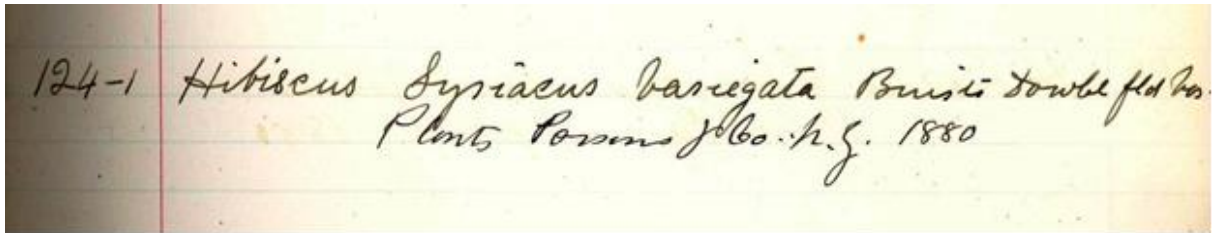 124-1 Hibiscus Syriacus variegata Buists Double fld var.
Plants Parsons & Co. N.Y. 1880